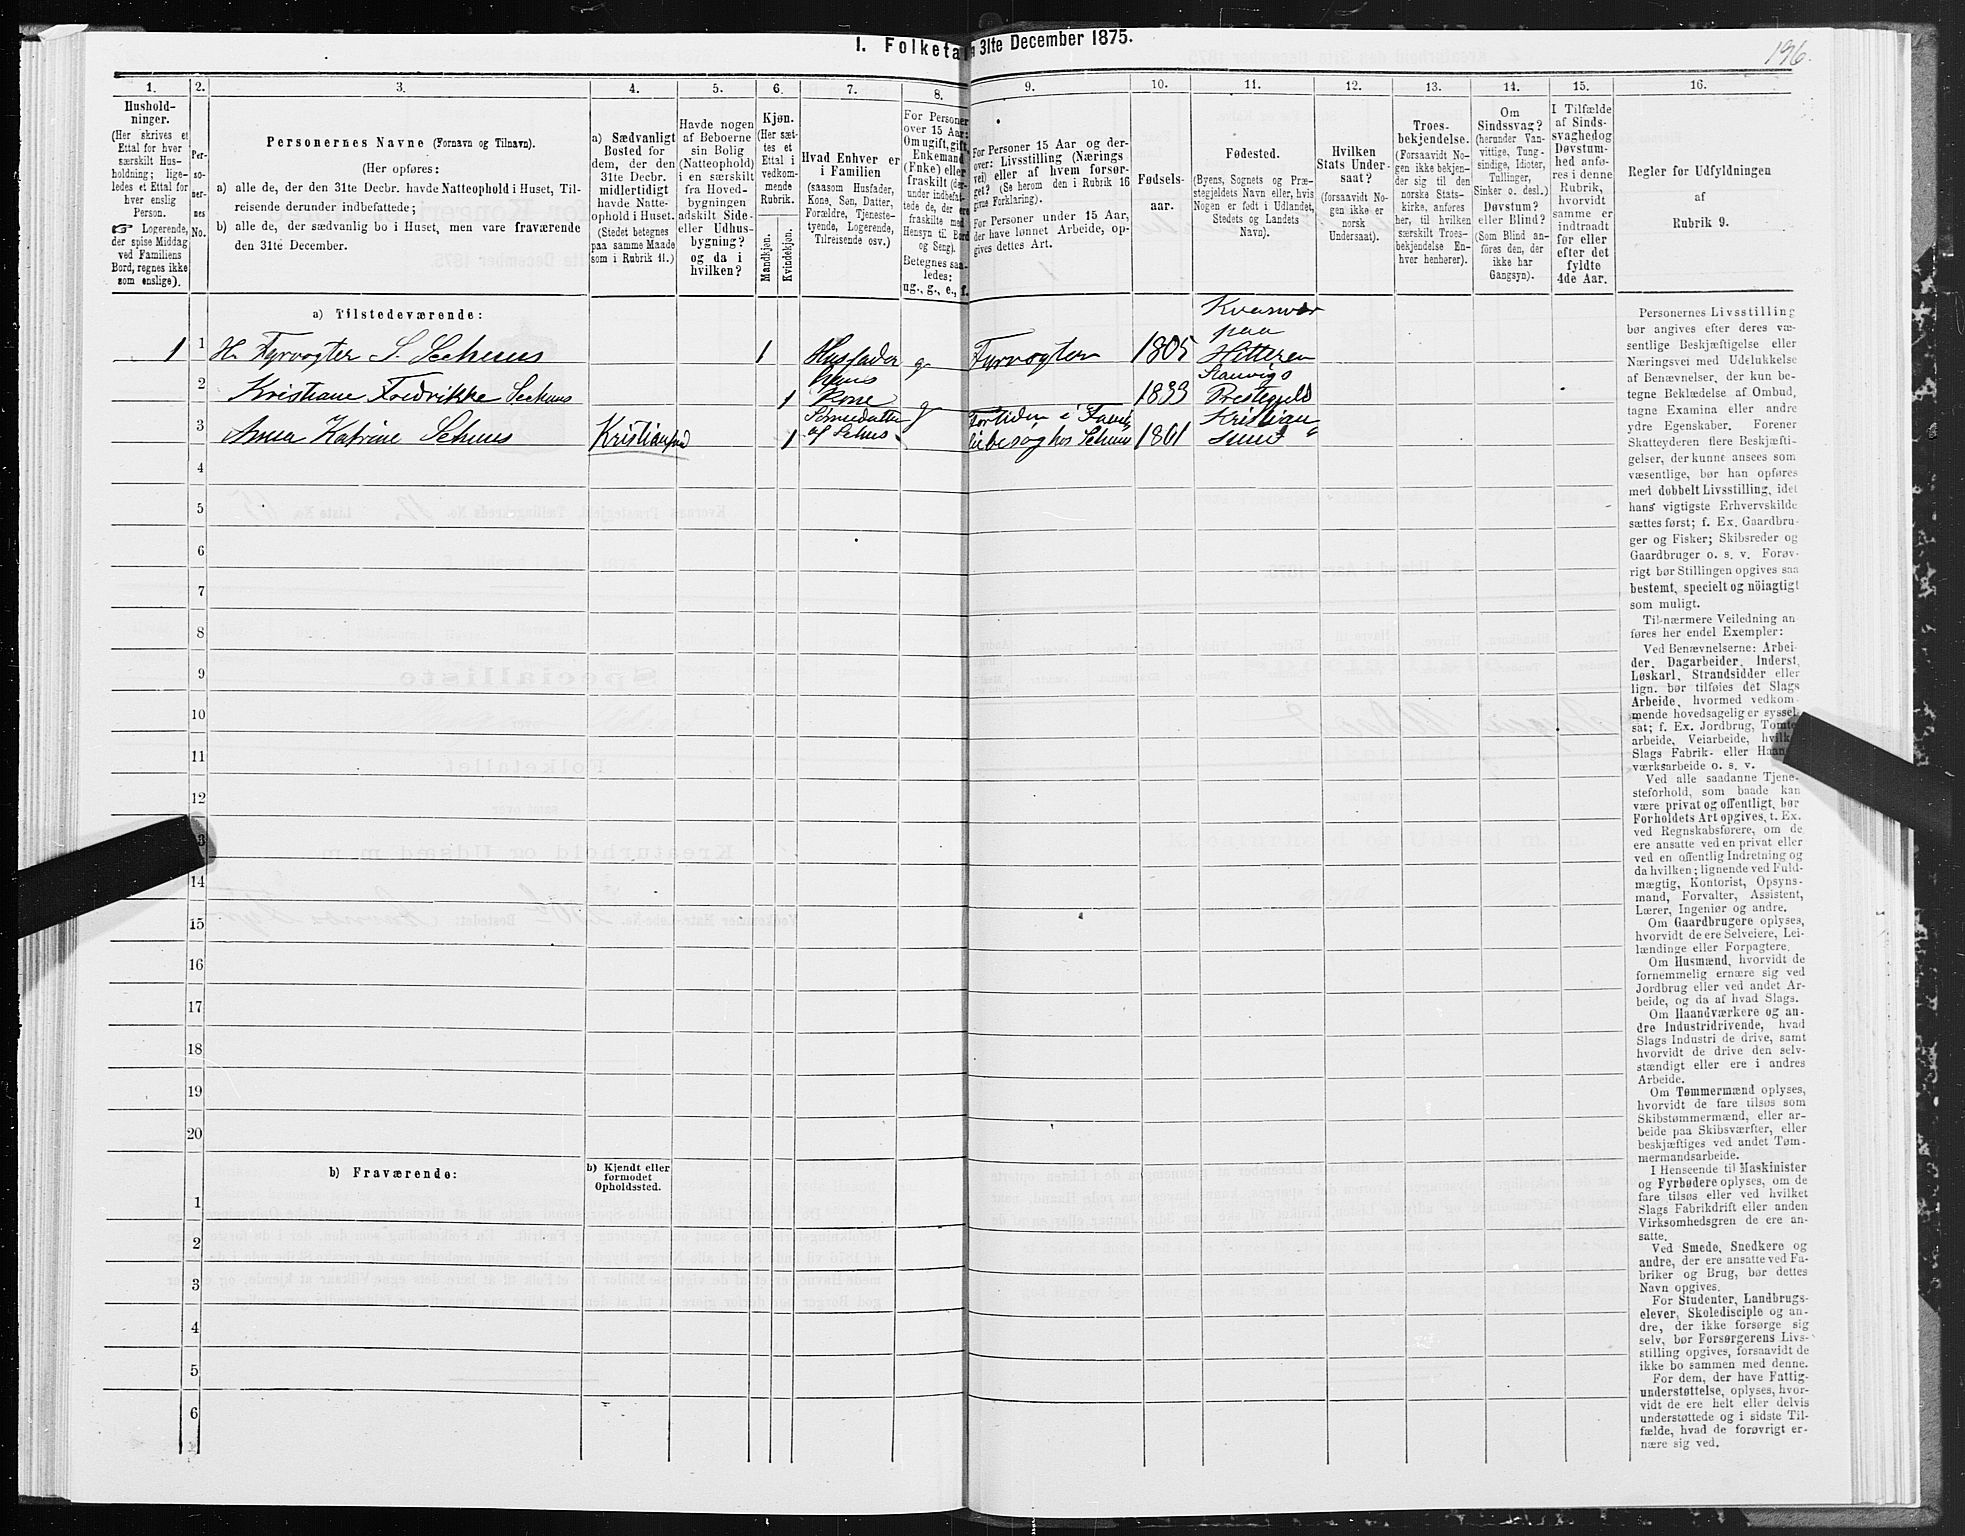 I. Folketa
31te December 1875.
196.
1.
2.
3.
4.
5.
6.
7.
8.
9.
10.
11.
12.
13.
14.
15.
16.
Hushold-
ninger.
(Her skrives et
Ettal for hver
særskilt Hus-
holdning; lige-
ledes et Ettal for
hver enslig
Person.
☞ Logerende,
der spise Middag
ved Familiens
Bord, regnes ikke
som enslige).
Per-
so-
ner-
nes
No.
Personernes Navne (Fornavn og Tilnavn).
(Her opføres:
a) alle de, der den 31te Decbr. havde Natteophold i Huset, Til-
reisende derunder indbefattede;
b) alle de, der sædvanlig bo i Huset, men vare fraværende
den 31te December.
a) Sædvanligt
Bosted for
dem, der den
31te Decbr.
midlertidigt
havde Natte-
ophold i Huset.
(Stedet betegnes
paa samme Maade
som i Rubrik 11.)
Havde nogen
af Beboerne
sin Bolig
(Natteophold)
i en særskilt
fra Hoved-
bygningen
adskilt Side-
eller Udhus-
bygning?
og da i
hvilken?
Kjøn.
(Her sæt-
tes et
Ettal i
vedkom-
mende
Rubrik.
Mandkjøn.
Kvindekjøn.
Hvad Enhver er
i Familien
(saasom Husfader,
Kone, Søn, Datter,
Forældre, Tjeneste-
tyende, Logerende,
Tilreisende osv.)
For Personer
over 15 Aar:
Om ugift, gift,
Enkemand
(Enke) eller
fraskilt (der-
under indbefat-
tede de, der ere
fraskilte med
Hensyn til Bord
og Seng).
Betegnes saa-
ledes:
ug., g., e., f.
For Personer 15 Aar og der-
over: Livsstilling (Nærings
vei) eller af hvem forsør-
get? (Se herom den i Rubrik 16
givne Forklaring).
For Personer under 15 Aar,
der have lønnet Arbeide, op-
gives dettes Art.
Fødsels-
aar.
Fødested.
(Byens, Sognets og Præ-
stegjeldets Navn eller, hvis
Nogen er født i Udlandet,
Stedets og Landets
Navn).
Hvilken
Stats Under-
saat?
(forsaavidt No-
gen ikke er
norsk
Undersaat).
Troes-
bekjendelse.
(Forsaavidt No-
gen ikke bekjen-
der sig til den
norske Stats-
kirke, anføres
her, til hvilken
særskilt Troes-
bekjendelse En-
hver henhører).
Om
Sindssvag?
(herunder Van-
vittige, Tung-
sindige, Idioter,
Tullinger,
Sinker o. desl.)
Døvstum?
eller Blind?
(Som Blind an-
føres den, der
ikke har
Gangsyn).
I Tilfælde
af Sinds-
svaghed og
Døvstum-
hed anfø-
res i denne
Rubrik,
hvorvidt
samme er
indtraadt
før eller
efter det
fyldte
4de Aar.
Regler for Udfyldningen
af
Rubrik 9.
a) Tilstedeværende:
1 1 H. Fyrvogter S. Sechuus 1 Husfader g Fyrvogter 1805 Kvænvær paa Hitteren
2 Kristiane Fredrikke Sechuus 1 hans Kone g 1833 Stangvigs Prestegjeld
3 Anna Katrine Sehuus Kristiansund 1 Sønnedatter af Sehus Fortiden i besøg hos Sehuus 1861 Kristiansund
4
5
6
7
8
9
10
11
12
3
14
15
16
17
18
19
20
b) Fraværende:
b) Kjendt eller
formodet
Opholdssted.
1
2
3
4
5
6
Personernes Livsstilling
bør angives efter deres væ-
sentlige Beskjæftigelse eller
Næringsvei med Udelukkelse
af Benævnelser, der kun be-
tegne Beklædelse af Ombud,
tagne Examina eller andre
ydre Egenskaber. Forener
Skatteyderen flere Beskjæfti-
gelser, der kunne ansees som
væsentlige, bør han opføres
med dobbelt Livsstilling, idet
hans vigtigste Erhvervskilde
sættes først; f. Ex. Gaardbru-
ger og Fisker; Skibsreder og
Gaardbruger o. s. v. Forøv-
rigt bør Stillingen opgives saa
bestemt, specielt og nöiagtigt
som muligt.
Til nærmere Veiledning an
føres her endel Exempler:
Ved Benævnelserne: Arbei-
der, Dagarbeider, Inderst,
Løskarl, Strandsidder eller
lign. bør tilføies det Slags
Arbeide, hvormed vedkom-
mende hovedsagelig er syssel-
sat; f. Ex. Jordbrug, Tomte-
arbeide, Veiarbeide, hvilke
Slags Fabrik- eller Haand-
værksarbeide o. s. v.
Ved alle saadanne Tjene-
steforhold, som baade kan
være privat og offentligt, bør
Forholdets Art opgives, t. Ex.
ved Regnskabsførere, om de
ere ansatte ved en privat eller
ved en offentlig Indretning og
da hvilken; lignende ved Fuld-
mægtig, Kontorist, Opsyns-
mand, Forvalter, Assistent,
Lærer, Ingeniør og andre.
Om Gaardbrugere oplyses,
hvorvidt de ere Selveiere, Lei-
lændinge eller Forpagtere.
Om Husmænd, hvorvidt de
fornemmelig ernære sig ved
Jordbrug eller ved andet Ar-
beide, og da af hvad Slags.
Om Haandværkere og an-
dre Industridrivende, hvad
Slags Industri de drive, samt
hvorvidt de drive den selv-
stændigt eller ere i andres
Arbeide.
Om Tømmermænd oplyses,
hvorvidt de fare tilsøs som
Skibstømmermænd, eller ar-
beide paa Skibsværfter, eller
beskjæftiges ved andet Tøm-
mermandsarbeide.
I Henseende til Maskinister
og Fyrbødere oplyses, om de
fare tilsøs eller ved hvilket
Slags Fabrikdrift eller anden
Virksomhedsgren de ere an-
satte.
Ved Smede, Snedkere og
andre, der ere ansatte ved Fa-
briker og Brug, bør dettes
Navn opgives.
For Studenter, Landbrugs-
elever, Skoledisciple og an-
dre, der ikke forsørge sig
selv, bør Forsørgerens Livs-
stilling opgives, forsaavidt de
ikke bo sammen med denne.
For dem, der have Fattig-
understøttelse, oplyses, hvor-
vidt de ere helt eller delvis
understøttede og i sidste Til-
fælde, hvad de forøvrigt er-
nære sig ved.